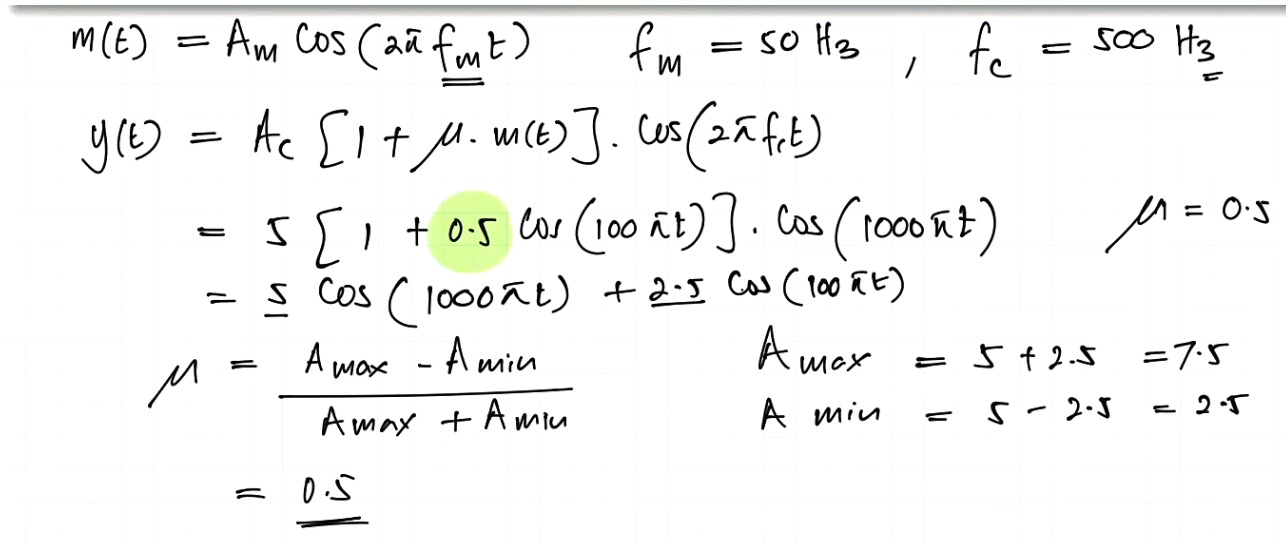 m(t) = Am Cos(2π fm t) fm = 50 Hz , fc = 500 Hz
y(t) = Ac [1 + μ. m(t)]. Cos(2π fc t)
= 5 [1 + 0.5 Cos(100 πt)]. Cos(1000 πt) μ = 0.5
= 5 Cos(1000πt) + 2.5 Cos(100 πt)
μ = Amax - Amin / Amax + Amin
Amax = 5 + 2.5 = 7.5
A min = 5 - 2.5 = 2.5
= 0.5